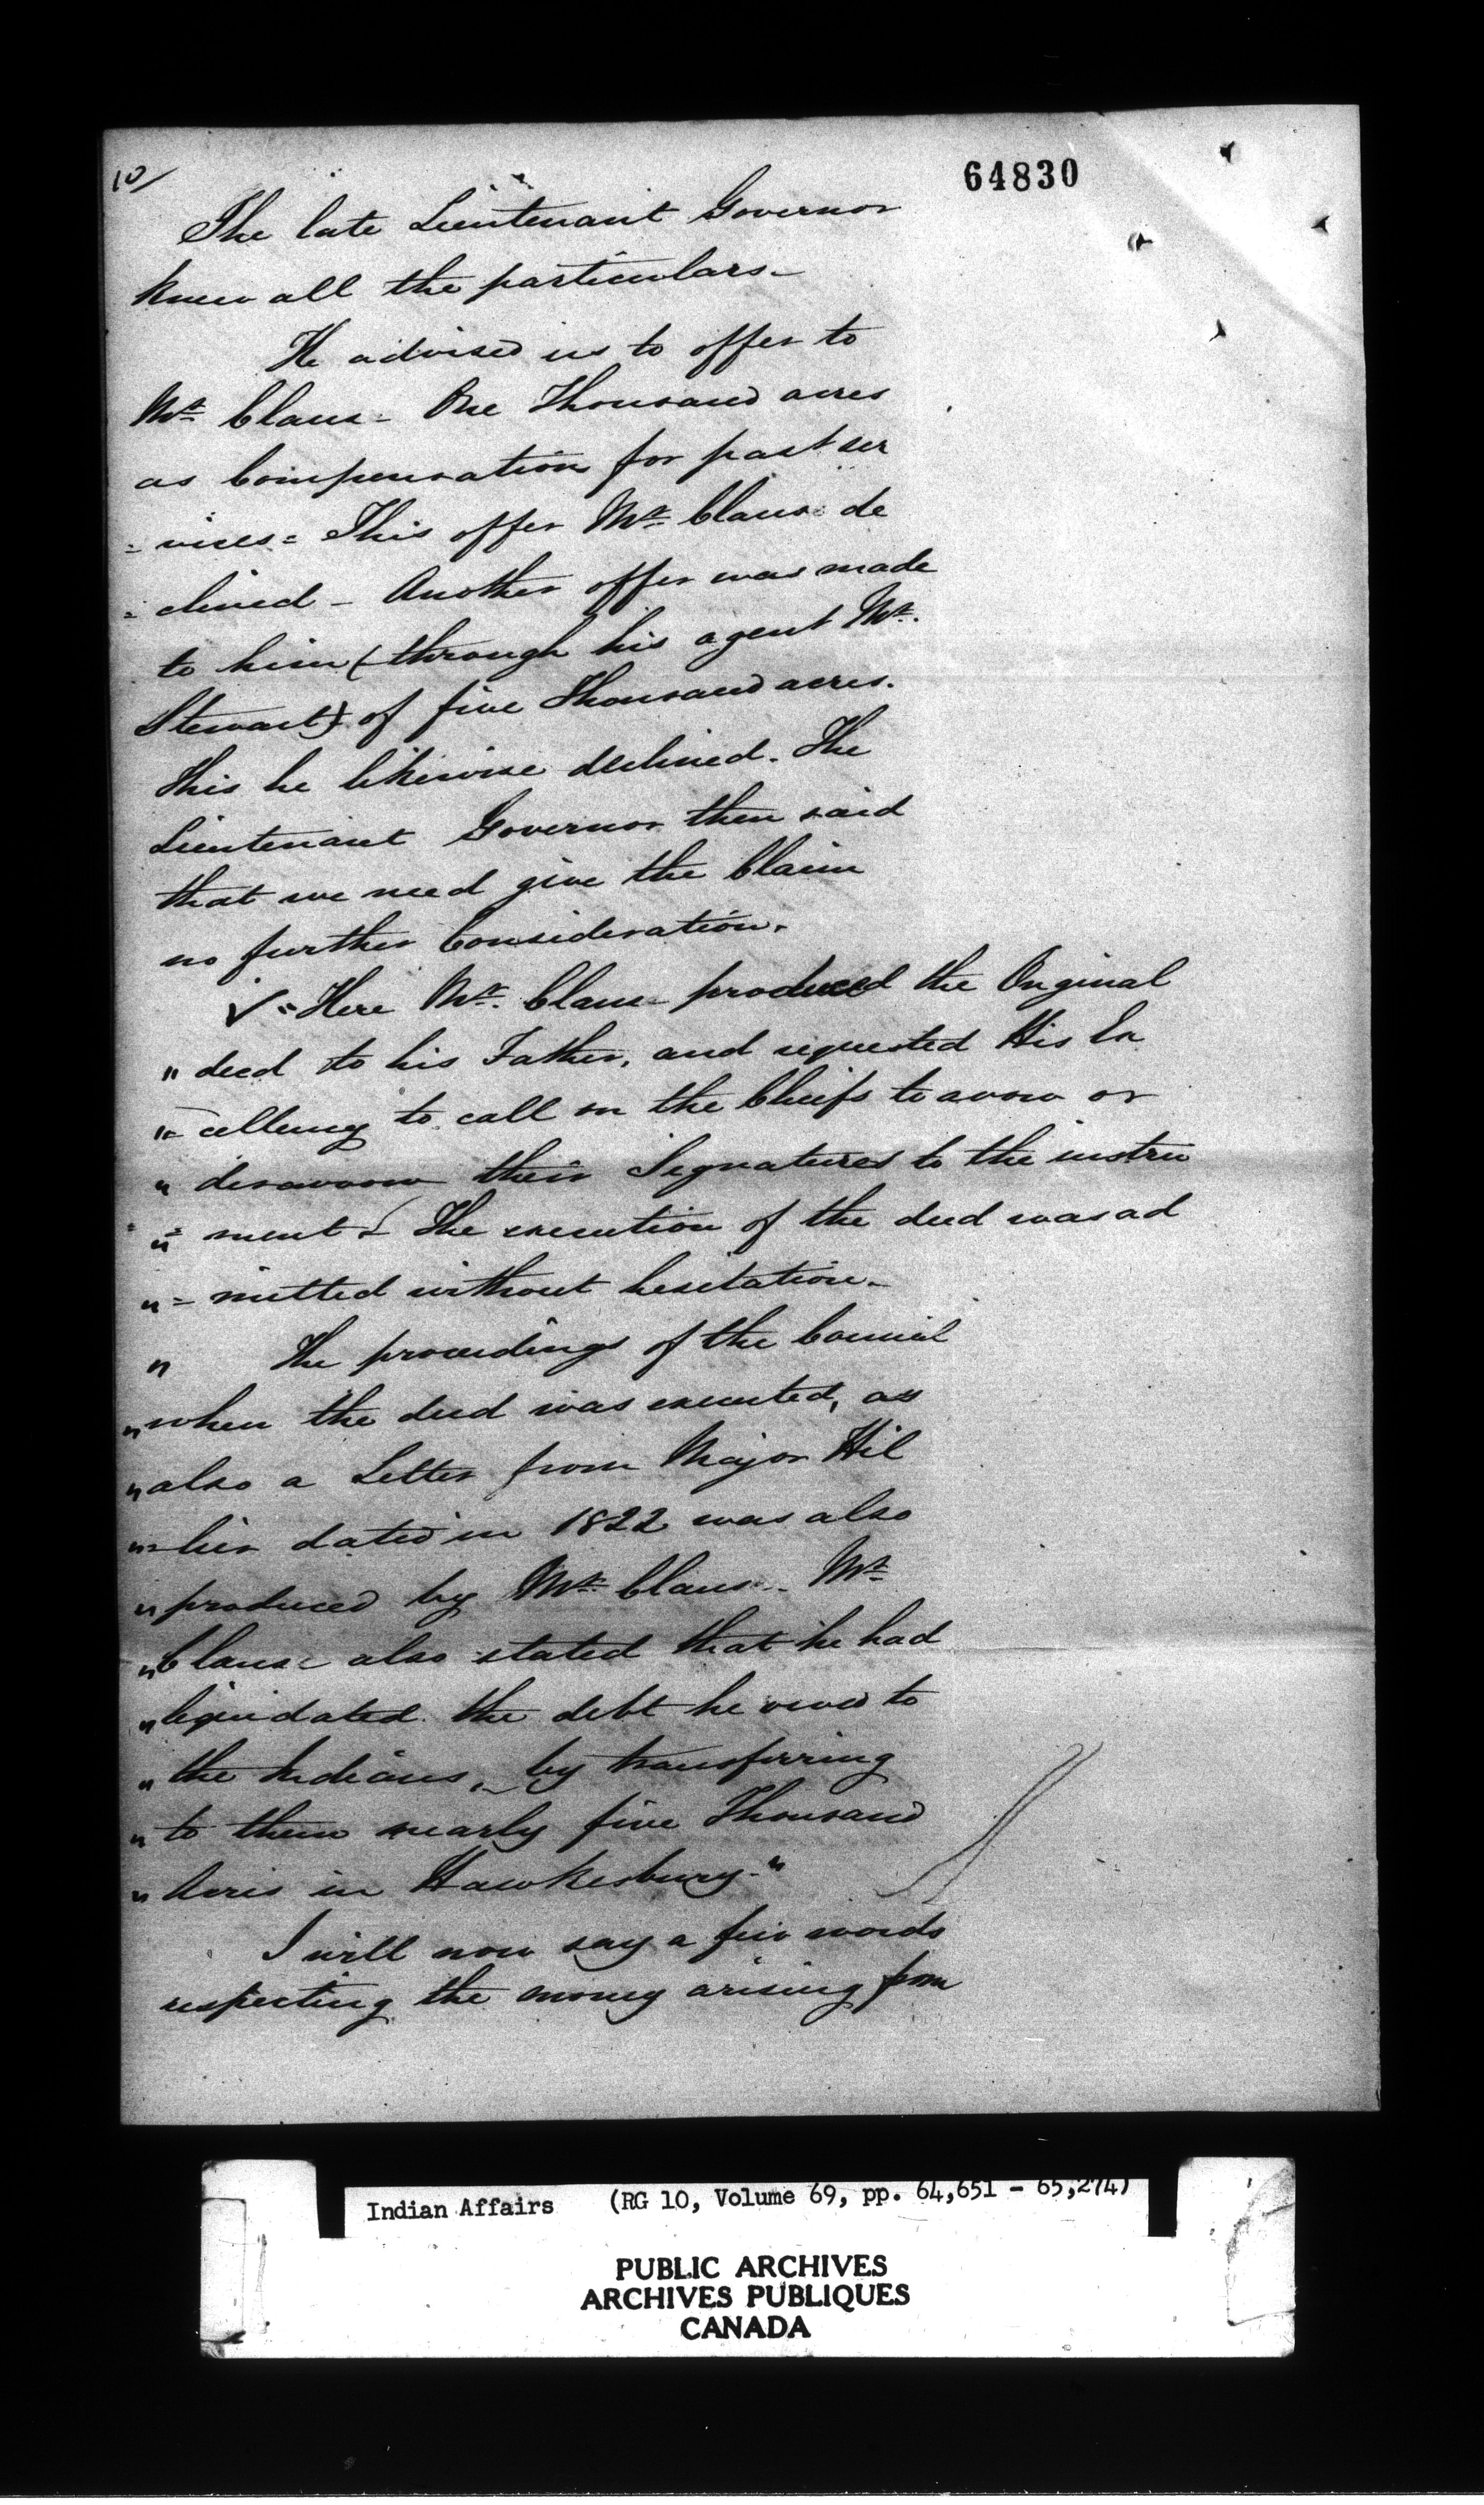 10/
64830
The late Lieutenant Governor
knew all the particulars.
He advised us to offer to
Mr. Claus - One Thousand acres
as Compensation for past ser
= vices = This offer Mr. Claus de
= clined - Another offer was made
to him (through his agent Mr.
Stewart) of five Thousand acres.
This he likewise declined. The
Lieutenant Governor then said
that we need give the Claim
no further Consideration.
"Here Mr. Claus produced the Original
" deed to his Father, and requested His Ex
"=cellency to call on the Chiefs to avow or
" disavow their Signatures to the instru
"= ment - The execution of the deed was ad
"= mitted without hesitation.
" The proceedings of the Council
" when the deed was executed, as
" also a Letter from Major Hil
"=lier dated in 1822 was also
" produced by Mr. Claus. Mr.
" Claus also stated that he had
" liquidated the debt he owed to
" the Indians, by transferring
" to them nearly five Thousand
" Acres in Hawkesbury."
I will now say a few words
respecting the money arising from
Indian Affairs (RG 10, Volume 69, pp. 64,651 - 65,274)
PUBLIC ARCHIVES
ARCHIVES PUBLIQUES
CANADA